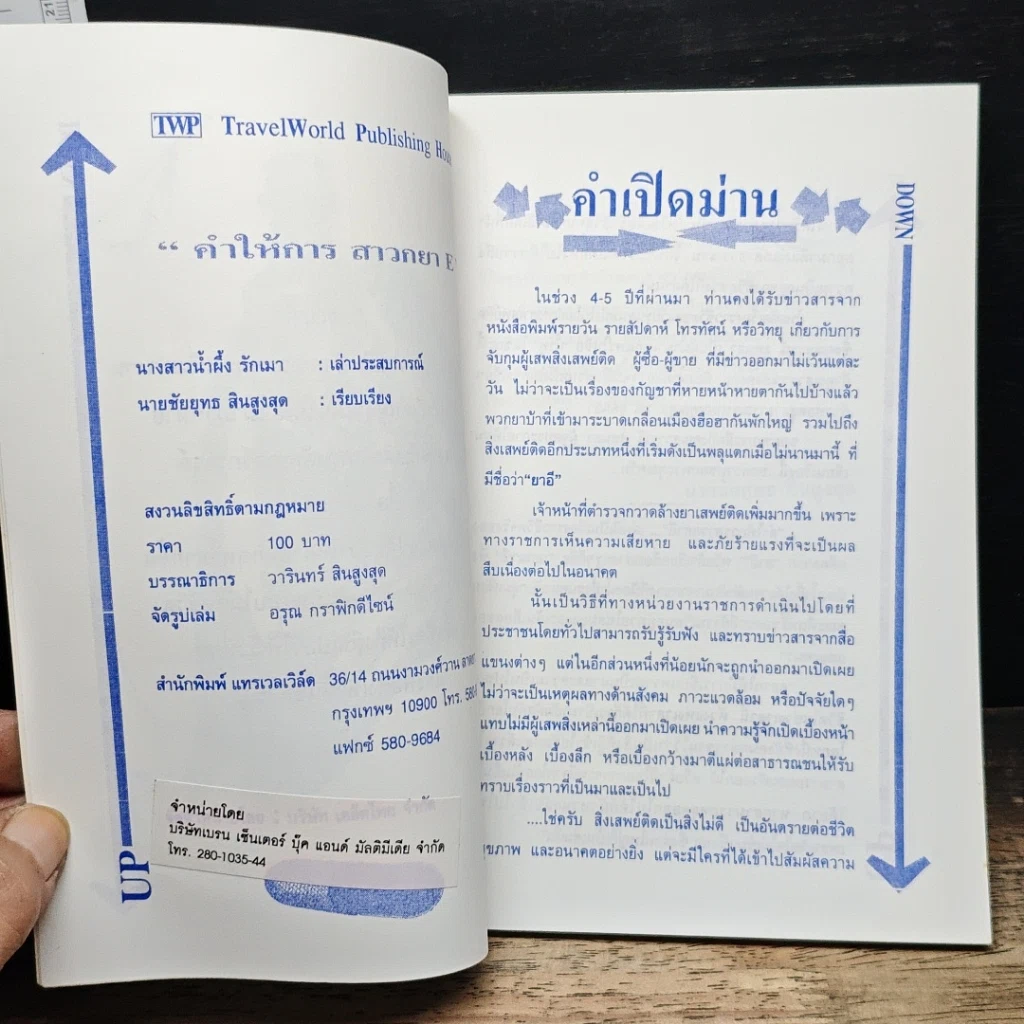 TWP TravelWorld Publishing
“ คำให้การ สาวกยา E
นางสาวน้ำผึ้ง รักเมา : เล่าประสบการณ์
นายชัยยุทธ สินสูงสุด : เรียบเรียง
สงวนลิขสิทธิ์ตามกฎหมาย
ราคา 100 บาท
บรรณาธิการ วารินทร์ สินสูงสุด
จัดรูปเล่ม อรุณ กราฟิกดีไซน์
สำนักพิมพ์ แทรเวลเวิล์ด 36/14 ถนนงามวงศ์วาน
กรุงเทพฯ 10900 โทร.
แฟกซ์ 580-9684
จำหน่ายโดย
บริษัทเบรน เซ็นเตอร์ บุ๊ค แอนด์ มัลติมีเดีย จำกัด
โทร. 280-1035-44
UP
คำเปิดม่าน
DOWN
ในช่วง 4-5 ปีที่ผ่านมา ท่านคงได้รับข่าวสารจาก
หนังสือพิมพ์รายวัน รายสัปดาห์ โทรทัศน์ หรือวิทยุ เกี่ยวกับการ
จับกุมผู้เสพสิ่งเสพย์ติด ผู้ซื้อ-ผู้ขาย ที่มีข่าวออกมาไม่เว้นแต่ละ
วัน ไม่ว่าจะเป็นเรื่องของกัญชาที่หายหน้าหายตากันไปบ้างแล้ว
พวกยาบ้าที่เข้ามาระบาดเกลื่อนเมืองฮือฮากันพักใหญ่ รวมไปถึง
สิ่งเสพย์ติดอีกประเภทหนึ่งที่เริ่มดังเป็นพลุแตกเมื่อไม่นานมานี้ ที่
มีชื่อว่า“ยาอี”
เจ้าหน้าที่ตำรวจกวาดล้างยาเสพย์ติดเพิ่มมากขึ้น เพราะ
ทางราชการเห็นความเสียหาย และภัยร้ายแรงที่จะเป็นผล
สืบเนื่องต่อไปในอนาคต
นั้นเป็นวิธีที่ทางหน่วยงานราชการดำเนินไปโดยที่
ประชาชนโดยทั่วไปสามารถรับรู้รับฟัง และทราบข่าวสารจากสื่อ
แขนงต่างๆ แต่ในอีกส่วนหนึ่งที่น้อยนักจะถูกนำออกมาเปิดเผย
ไม่ว่าจะเป็นเหตุผลทางด้านสังคม ภาวะแวดล้อม หรือปัจจัยใดๆ
แทบไม่มีผู้เสพสิ่งเหล่านี้ออกมาเปิดเผย นำความรู้จักเปิดเบื้องหน้า
เบื้องหลัง เบื้องลึก หรือเบื้องกว้างมาตีแผ่ต่อสาธารณชนให้รับ
ทราบเรื่องราวที่เป็นมาและเป็นไป
....ใช่ครับ สิ่งเสพย์ติดเป็นสิ่งไม่ดี เป็นอันตรายต่อชีวิต
สุขภาพ และอนาคตอย่างยิ่ง แต่จะมีใครที่ได้เข้าไปสัมผัสความ